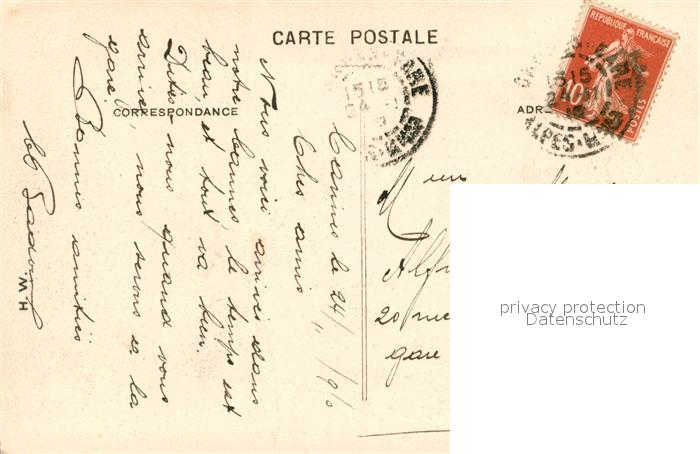 CARTE POSTALE
CORRESPONDANCE
ADR
REPUBLIQUE FRANÇAISE
10
POSTES
GARE
15 15
24
Cannes le 24/11/
Chers amis
Nous voici arrivés dans
notre bonnes, le temps est
beau, et tout va bien.
Dites-nous quand vous
arrivez, nous serons à la
gare.
Bonnes amitiés
M H W
Alf
20 rue
gare
privacy protection
Datenschutz